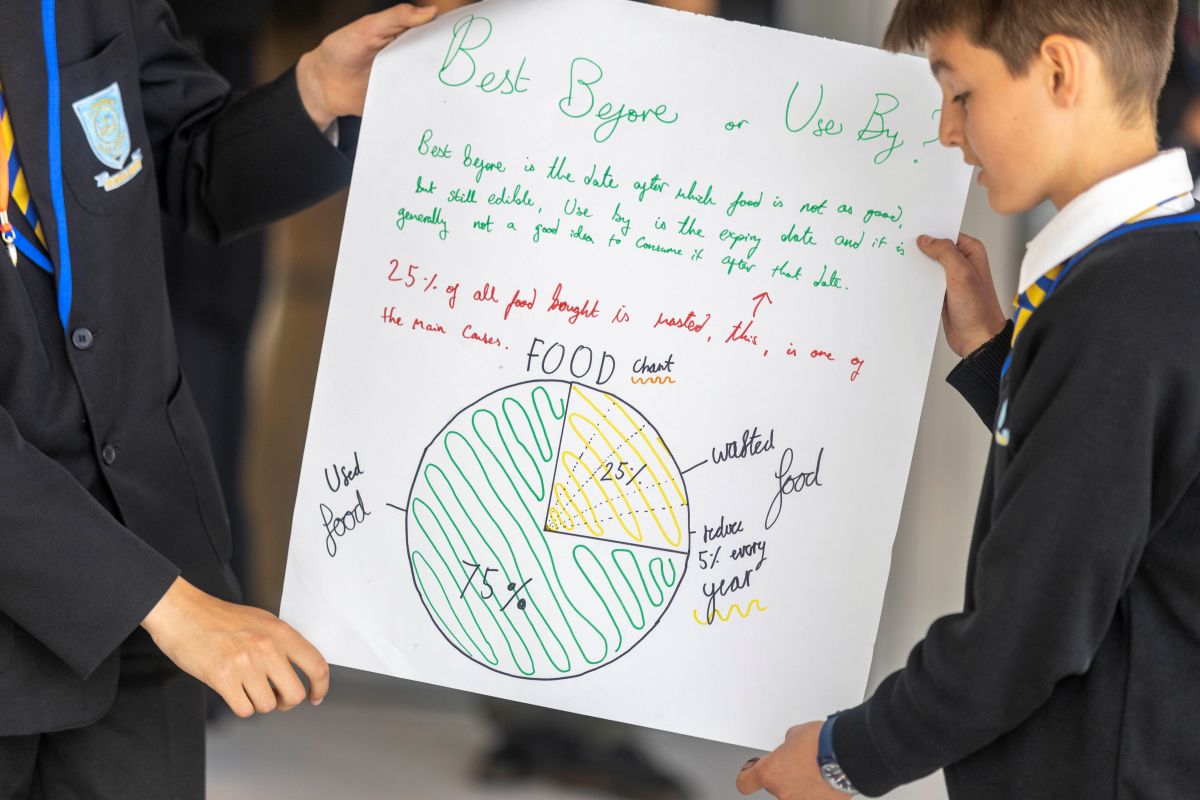 Best Before or Use By?
Best before is the date after which food is not as good,
but still edible, Use by is the expiry date and it is
generally not a good idea to consume it after that date.
25% of all food bought is wasted, this, is one of
the main causes.
FOOD chart
25%
wasted
food
Used
food
reduce
5% every
year
75%